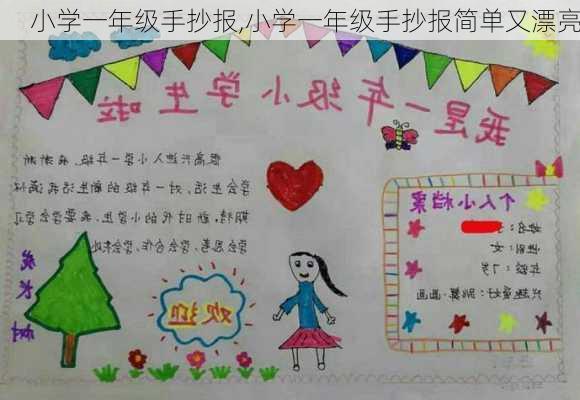 小学一年级手抄报,小学一年级手抄报简单又漂亮
我是一年级小学生啦
很高兴进入小学一年级、我渐渐
学会生活、对一年级的新生活我满怀
期待,新时代的小学生、我要学会学习
学会思考、学会合作、学会相处
个人小档案
姓名:
性别:女
年龄:7岁
兴趣爱好:跳舞、画画
成长树
欢迎